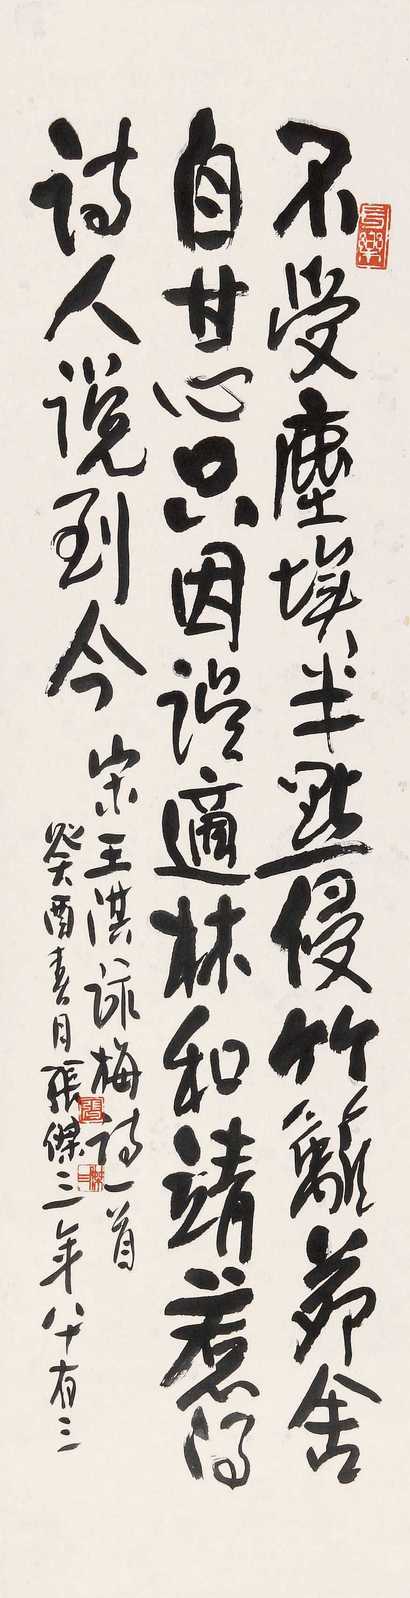 不受塵埃半點侵竹籬茆舍
自甘心只因誤適林和靖惹得
詩人說到今
宋王淇詠梅詩一首
癸酉春月張傑三年八十有三